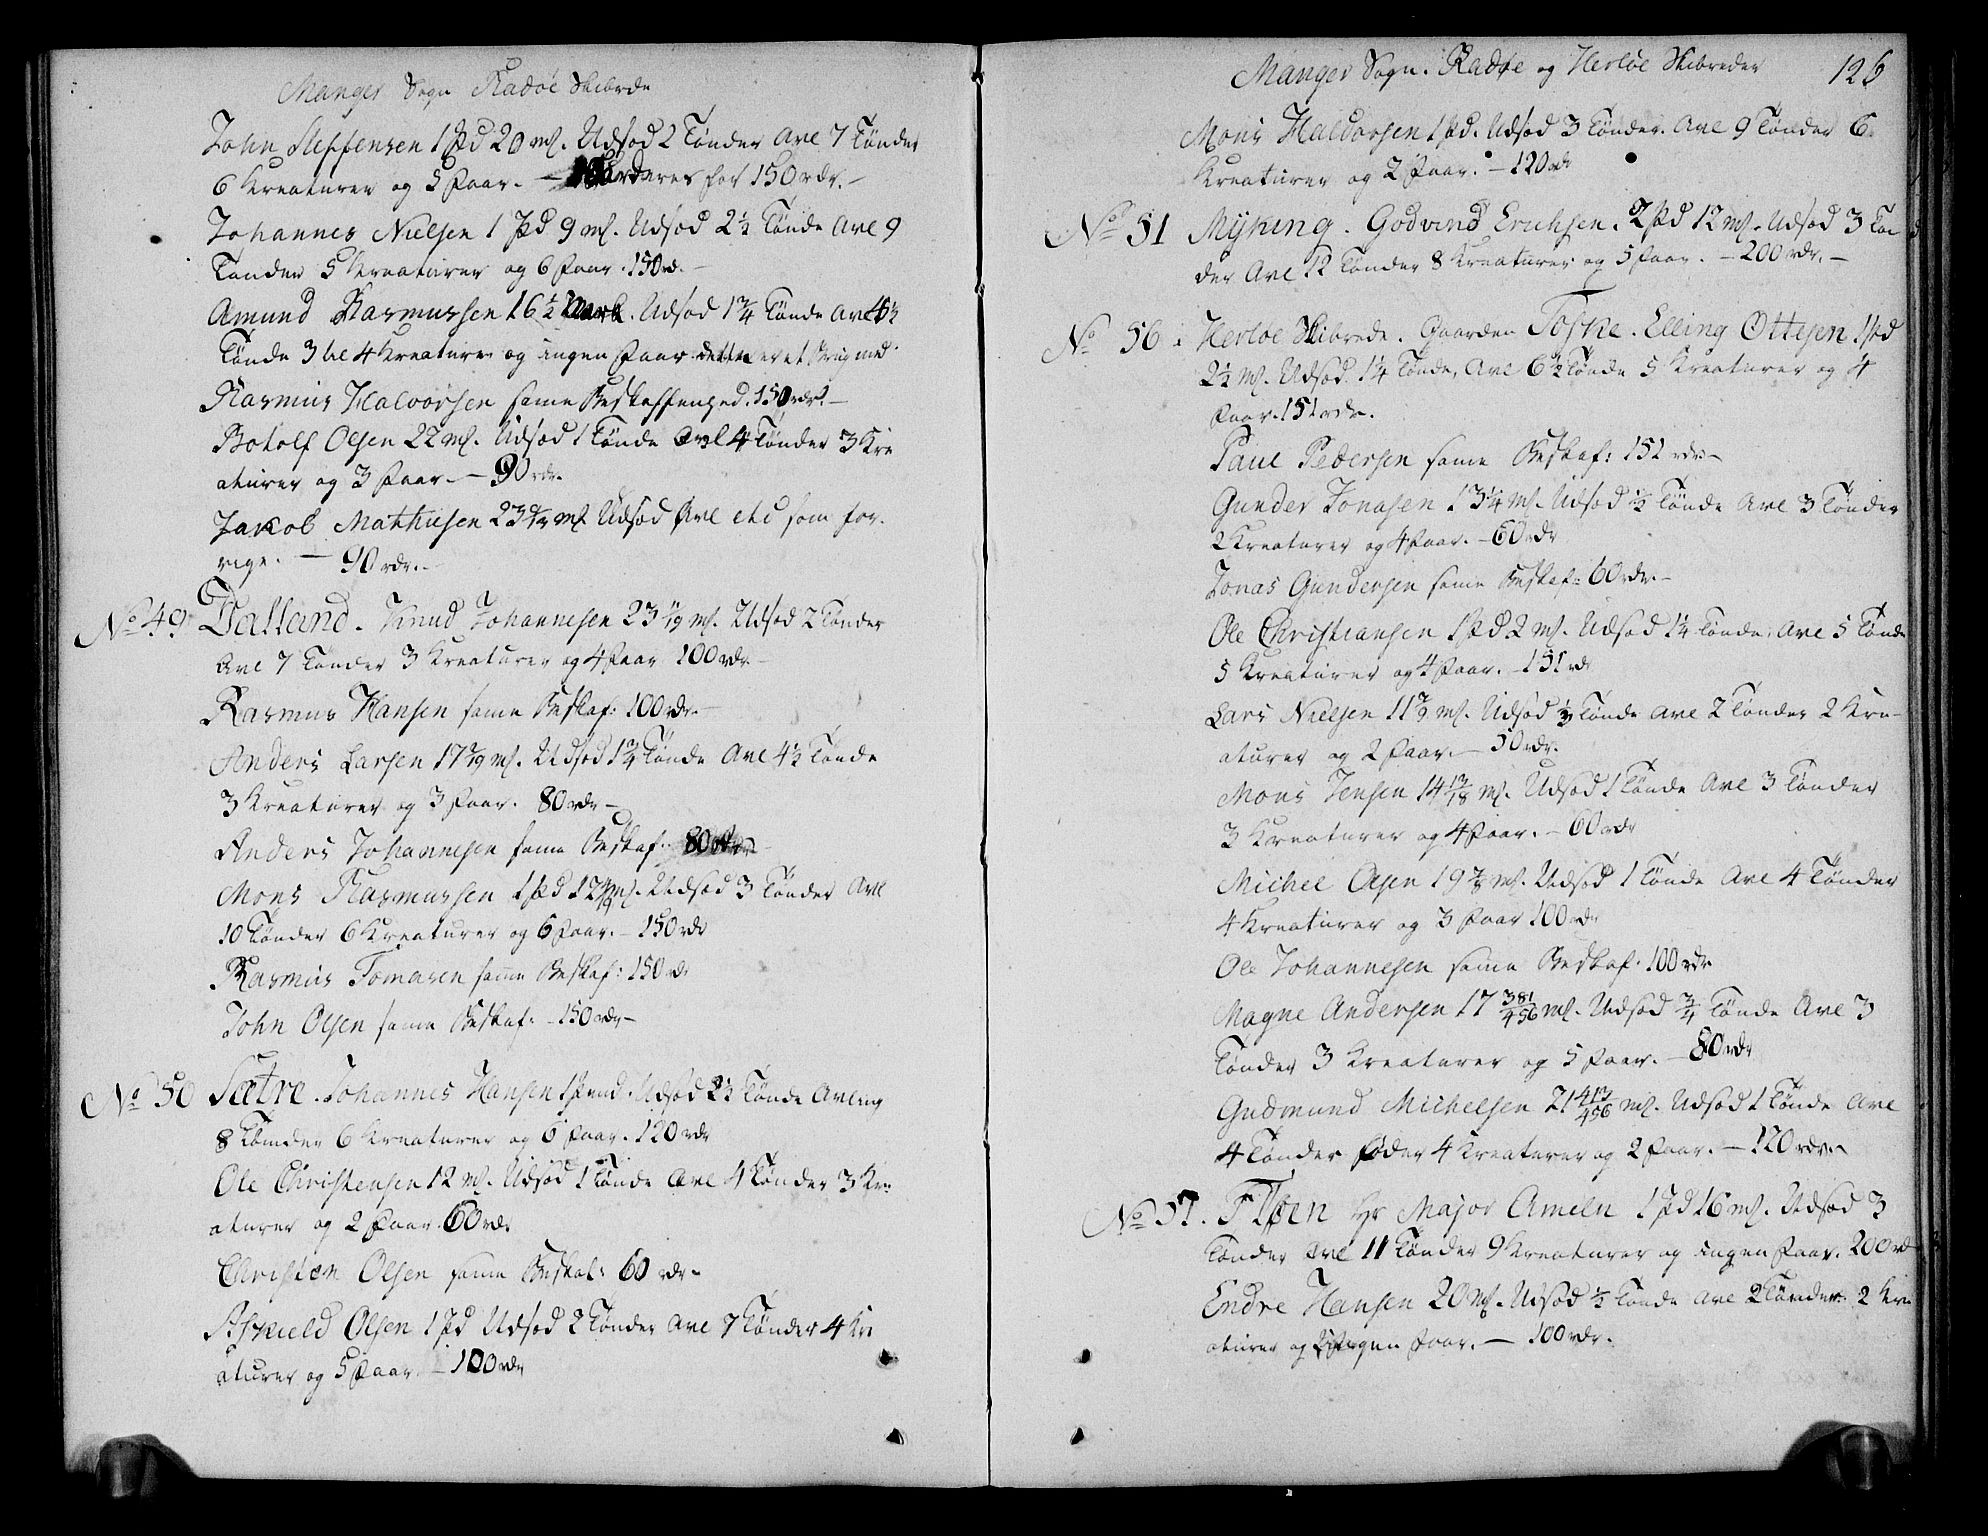 Manger Sogn Radøe Skibrde
John Steffensen 1 Pd 20 mk. Udsød 2 Tønder Avl 7 Tønder
6 Kreaturer og 5 Faar. — Vurderes for 150 rdr. —
Johannes Nielsen 1 Pd 9 mk. Udsød 2½ Tønde Avl 9
Tønder 5 Kreaturer og 6 Faar. 150 rd. —
Amund Rasmussen 16½ Mark. Udsød 1¾ Tønde Avl 5½
Tønde 3 til 4 Kreaturer og ingen Faar
Rasmus Halvorsen same Beskaffenhed. 150 rdr. —
Botolf Olsen 22 mk. Udsød 1 Tønde Avl 4 Tønder 3 Kre
aturer og 3 Faar. — 90 rdr.
Jakob Mathiesen 23 mk Udsød Avl etc som for-
rige. — 90 rdr. —
No 49 Dalland. Knud Johannesen 23 1/9 mk. Udsød 2 Tønder
Avl 7 Tønder 3 Kreaturer og 4 Faar 100 rdr —
Rasmus Hansen same Beskaf: 100 rdr. —
Anders Larsen 17 7/9 mk. Udsød 1¾ Tønde Avl 4½ Tønde
3 Kreaturer og 3 Faar. 80 rdr —
Anders Johannesen same Beskaf: 80 rdr
Mons Rasmussen 1 Pd 12 mk. Udsød 3 Tønder Avl
10 Tønder 6 Kreaturer og 6 Faar. — 150 rdr
Rasmus Tomasen same Beskaf: 150 rd
John Olsen same Beskaf: — 150 rdr —
No 50 Sætre. Johannes Hansen 1 Pund. Udsød 2½ Tønde Avling
8 Tønder 6 Kreaturer og 6 Faar. 120 rdr
Ole Christensen 12 mk. Udsød 1 Tønde Avl 4 Tønder 3 Kre
aturer og 2 Faar. 60 rdr
Christen Olsen same Beskaf: 60 rdr —
Askield Olsen 1 Pd Udsød 2 Tønder Avl 7 Tønder 4 Kre
aturer og 5 Faar. — 100 rdr
Manger Sogn. Radøe og Herløe Skibreder 126
Mons Haldorsen 1 Pd. Udsød 3 Tønder. Avl 9 Tønder 6
Kreaturer og 2 Faar. — 120 rdr
No 51 Myking. Godvind Erichsen. 2 Pd 12 mk. Udsød 3 Tøn
der Avl 12 Tønder 8 Kreaturer og 5 Faar. — 200 rdr. —
No 56. Herloe Skibrede. Gaarden Toske. Elling Ottesen 1 Pd
2½ mk. Udsød 1¼ Tønde, Avl 6½ Tønde 5 Kreaturer og 4
Faar. 151 rdr.
Paul Pedersen same Beskaf: 151 rdr —
Gunder Jonasen 13¼ mk. Udsød ½ Tønde Avl 3 Tønder
2 Kreaturer og 4 Faar. — 60 rdr
Jonas Gundersen same Beskaf: 60 rdr. —
Ole Christiansen 1 Pd 2 mk. Udsød 1¼ Tønde, Avl 5 Tønde
5 Kreaturer og 4 Faar. — 151 rd
Lars Nielsen 11 7/9 mk. Udsød ½ Tønde Avl 2 Tønder 2 Kre-
aturer og 2 Faar. — 50 rdr.
Mons Jensen 14 13/18 mk. Udsød 1 Tønde Avl 3 Tønder
3 Kreaturer og 4 Faar. — 60 rdr
Michel Olsen 19 7/8 mk. Udsød 1 Tønde Avl 4 Tønder
4 Kreaturer og 3 Faar 100 rdr
Ole Johannesen same Beskaf. 100 rdr
Magne Andersen 17 381/456 mk. Udsød ¾ Tønde Avl 3
Tønder 3 Kreaturer og 5 Faar. — 80 rdr
Gudmund Michelsen 21 413/456 mk. Udsød 1 Tønde Avl
4 Tønder føder 4 Kreaturer og 2 Faar. — 120 rdr. —
No 57. Fløen Hr Major Ameln 1 Pd 16 mk. Udsød 3
Tønder Avl 11 Tønder 9 Kreaturer og ingen Faar. 200 rd
Endre Hansen 20 mk. Udsød ½ Tønde Avl 2 Tønder. 2 Kre
aturer og ingen Faar. — 100 rdr.